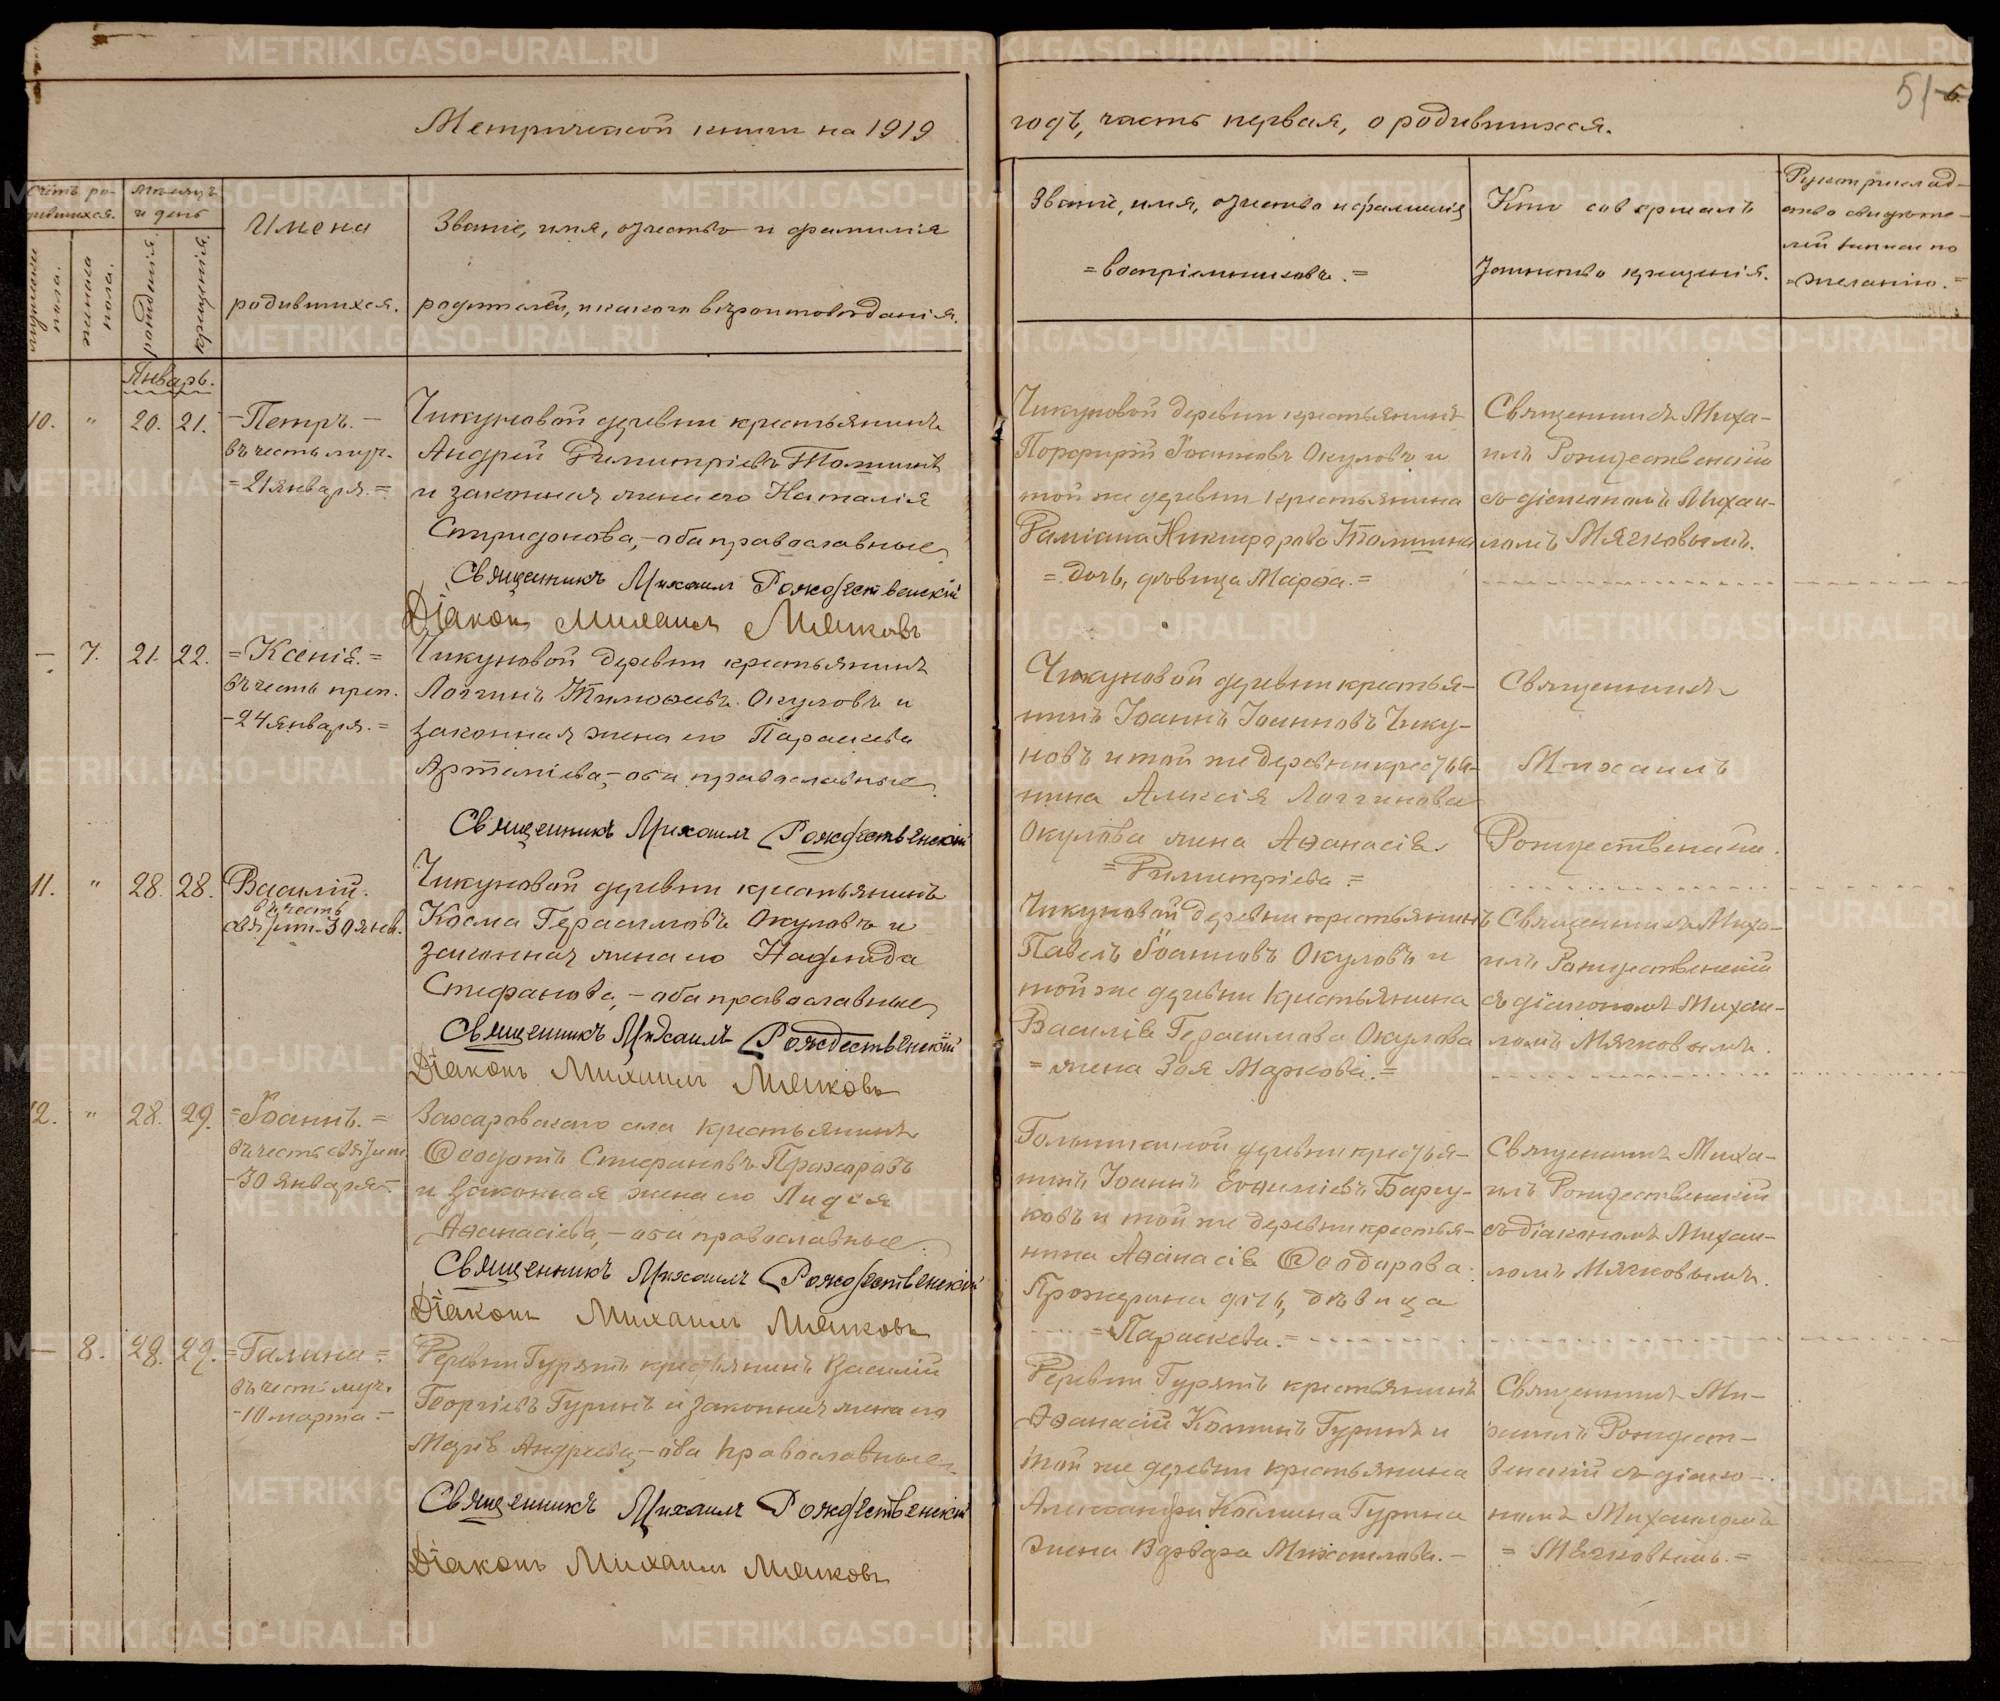 Метрической книги на 1919
годъ, часть первая, о родившихся.
51
Счетъ родившихся.
Мѣсяцъ и день
мужеска пола.
женска пола.
рожденія.
крещенія.
Имена
родившихся.
Званіе, имя, отчество и фамилія
родителей, и какого вѣроисповѣданія.
Званіе, имя, отчество и фамилія
=воспріемниковъ.=
Кто совершалъ
таинство крещенія.
Рукоприклад-
ство свидѣте-
лей записи по
=желанію.=
Январь.
10. " 20. 21.
-Петръ.-
въ честь муч.
=21 января.=
Чикуновой деревни крестьянинъ
Андрей Димитріевъ
и законная жена его Наталія
Спиридонова,-оба православные
Священникъ Михаилъ Рождественскій
Діаконъ Михаилъ Мячковъ
Чикуновой деревни крестьянинъ
Порфирій Іоанновъ Окуловъ и
той же деревни крестьянина
Даміана Никифорова
=дочь, дѣвица Марѳа.=
Священникъ Миха-
илъ Рождественскій
съ діакономъ Михаи-
ломъ Мячковымъ.
- 7. 21. 22.
=Ксенія.=
въ честь преп.
-24 января.=
Чикуновой деревни крестьянинъ
Логгинъ Тимоѳеевъ Окуловъ и
законная жена его Параскева
Артеміева,-оба православные
Священникъ Михаилъ Рождественскій
Чикуновой деревни крестья-
нинъ Іоаннъ Іоанновъ Чику-
новъ и той же деревни крестья-
нина Алексія Логгинова
Окулова жена Аѳанасія
=Димитріева=
Священникъ
Михаилъ
Рождественскій.
11. " 28. 28.
Василій.
въ честь
святит. 30 янв.
Чикуновой деревни крестьянинъ
Косма Герасимовъ Окуловъ и
законная жена его Надежда
Стефанова,-оба православные
Священникъ Михаилъ Рождественскій
Діаконъ Михаилъ Мячковъ
Чикуновой деревни крестьянинъ
Павелъ Іоанновъ Окуловъ и
той же деревни крестьянина
Василія Герасимова Окулова
=жена Зоя Маркова.=
Священникъ Миха-
илъ Рождественскій
съ діакономъ Михаи-
ломъ Мячковымъ.
12. " 28. 29.
=Іоаннъ.=
въ честь святит.
-30 января-
Захаровскаго села крестьянинъ
Ѳеодотъ Стефановъ
и законная жена его Лидія
Аѳанасіева,-оба православные
Священникъ Михаилъ Рождественскій
Діаконъ Михаилъ Мячковъ
деревни крестья-
нинъ Іоаннъ
и той же деревни крестья-
нина Аѳанасія Ѳеодорова
дочь, дѣвица
=Параскева.=
Священникъ Миха-
илъ Рождественскій
съ діакономъ Михаи-
ломъ Мячковымъ.
- 8. 29. 29.
=Галина=
въ честь муч.
-10 марта.-
Деревни Гурятъ крестьянинъ Василій
Георгіевъ Гуринъ и законная жена его
Марія Андреева,-оба православные
Священникъ Михаилъ Рождественскій
Діаконъ Михаилъ Мячковъ
Деревни Гурятъ крестьянинъ
Аѳанасій Гуринъ и
той же деревни крестьянина
Александра Космина Гурина
жена Михаилова.-
Священникъ Ми-
хаилъ Рождест-
венскій съ діако-
номъ Михаиломъ
=Мячковымъ.=
METRIKI.GASO-URAL.RU